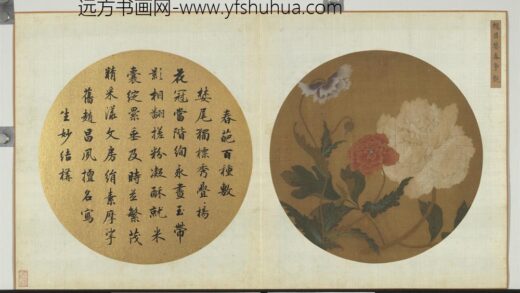 远方书画网-www.yfshuhua.com
春葩百種數
婪尾獨標秀疊
花冠當階絢永晝玉帶
影相翻搓粉凝酥就米
囊綻累垂及時並繁茂
精采漾文房絹素厚字
舊趙昌夙擅名寫
生妙結構